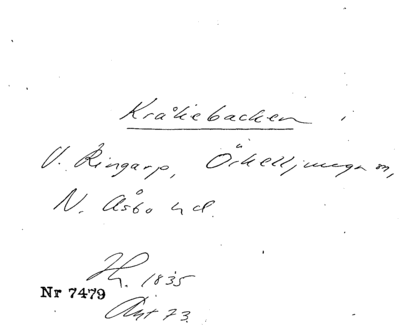 Kråkebacken i
V. Ringarp, Örkelljunga sn,
N. Åsbo hd.
1835
Nr 7479
Ant 73.